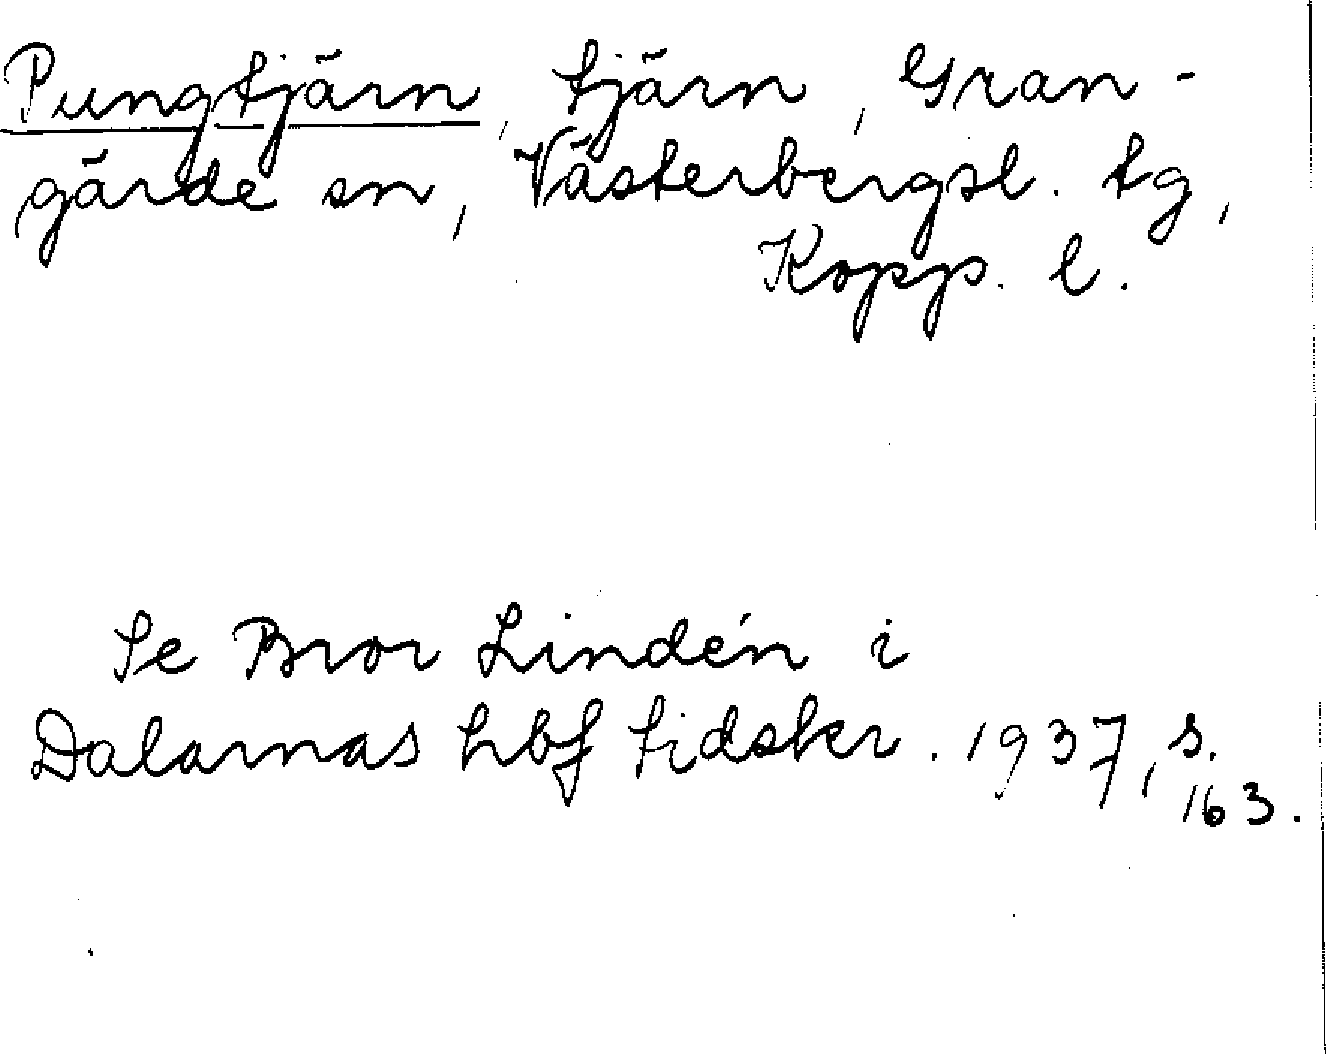 Pungtjärn, tjärn, Gran-
gärde sn, Västerbergsl. tg,
Kopp. l.
Se Bror Lindén i
Dalarnas hbf tidskr. 1937, s.
163.